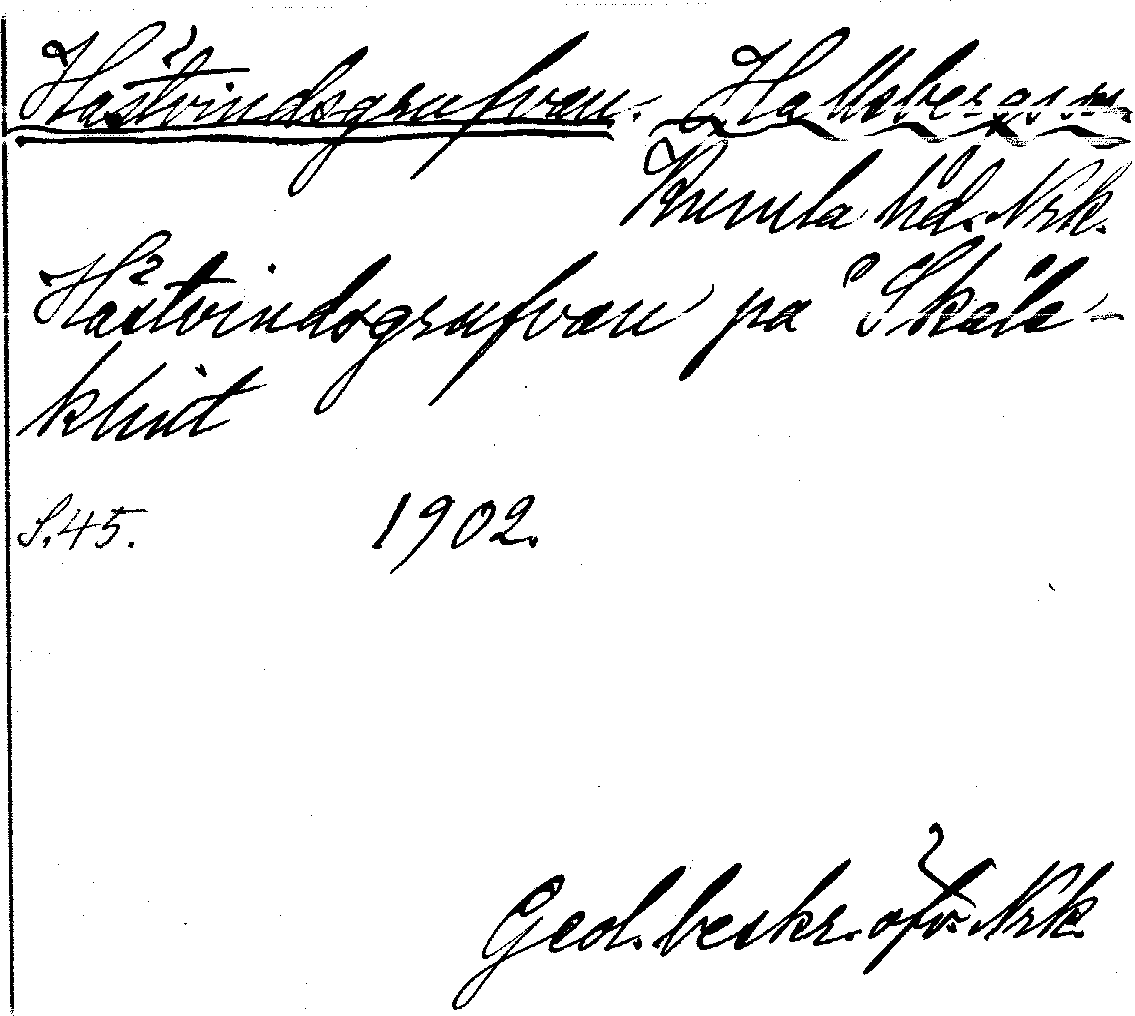 Hästvindsgrufvan. Hallsbergs sn
Kumla hd. Nrk.
Hästvindsgrufvan på Skåle-
klint
S. 45. 1902.
Geol. beskr. öfv. Nrk.